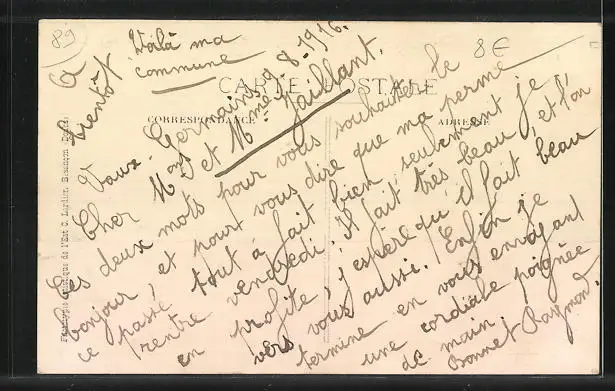 89
Voilà ma
commune
8€
A
bientôt
CARTE POSTALE
CORRESPONDANCE
ADRESSE
Vaux St Germain 9-8-1916.
Cher Mons et Mme Jaillant.
Ces deux mots pour vous souhaiter le
bonjour, et pour vous dire que ma perme
ce passe tout à fait bien, seulement je
rentre vendredi. Il fait très beau et l'on
en profite, j'espère qu'il fait beau
vers vous aussi. Enfin je
termine en vous envoyant
une cordiale poignée
de main.
Bonnet Raymond.
de l'Est C. Lardier, Besançon